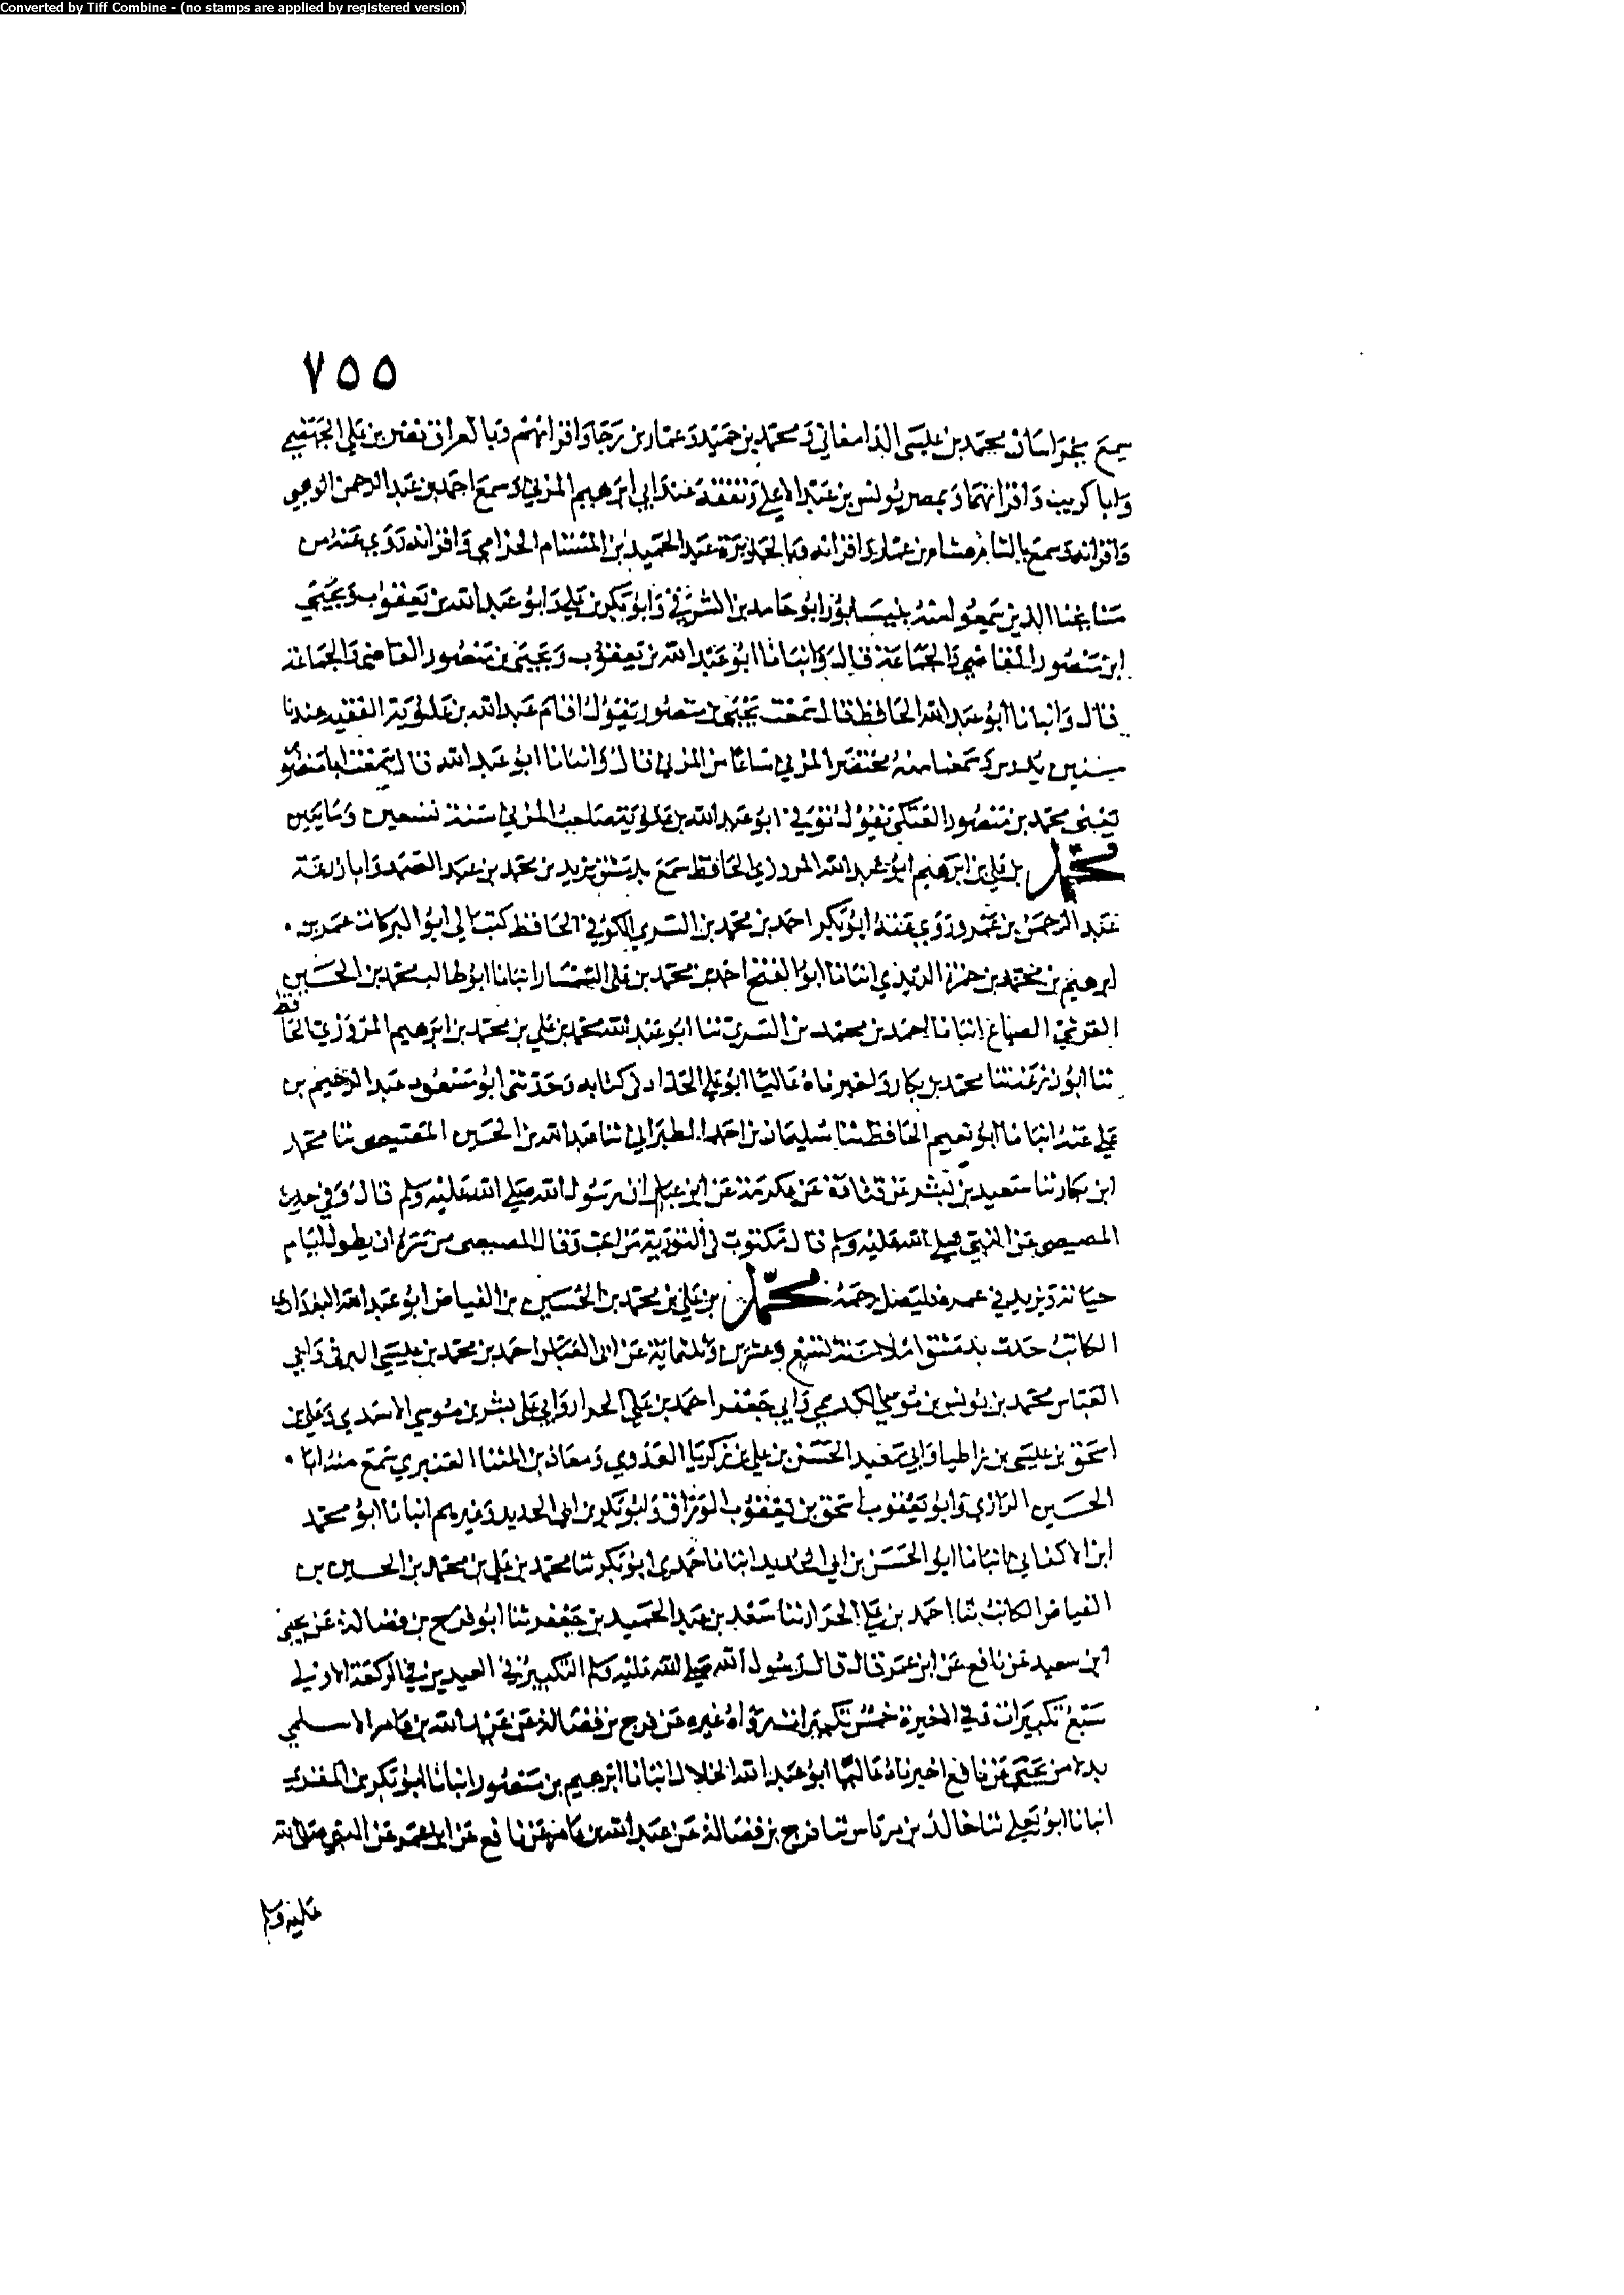 Converted by Tiff Combine - (no stamps are applied by registered version)
٧٥٥
سمع بخراسان محمد بن عيسى الدامغاني ومحمد بن حميد وعمار بن رجا واقرانهم وبالعراق نصر بن علي الجهضمي
وابا كريب واقرانهما وبمصر يونس بن عبد الاعلى وتفقه عند ابي ابرهيم المزني وسمع احمد بن عبد الرحمن الوهبي
واقرانه وسمع بالشام هشام بن عمار واقرانه وبالجزيرة عبد الحميد بن المستنام الحرامي واقرانه روى عنه من
مشايخنا الذين سمعوا منه بنيسابور ابو حامد بن الشرقي وابو بكر بن علي وابو عبد الله بن يعقوب ويحيى
ابن منصور القاضي والجماعة قال وانبانا ابو عبد الله بن يعقوب ويحيى بن منصور القاضي والجماعة
قال وانبانا ابو عبد الله الحافظ قال سمعت يحيى بن منصور يقول اقام عبد الله بن علويه الفقيه عندنا
سنين يدرس وسمعنا منه مختصر المزني سماعا من المزني قال وانبانا ابو عبد الله قال سمعت ابا منصور
يعني محمد بن منصور العتكي يقول توفي ابو عبد الله بن علويه صاحب المزني سنة تسعين ومايتين
محمد بن علي بن ابرهيم ابو عبد الله المروزي الحافظ سمع بدمشق يزيد بن محمد بن عبد الصمد وابا زرعة
عبد الرحمن بن عمرو روى عنه ابو بكر احمد بن محمد بن السري الكوفي الحافظ كتب الي ابو البركات عمر بن
ابرهيم بن محمد بن حمزة الزيدي انبانا ابو الفتح احمد بن محمد بن علي انبانا ابو طالب محمد بن الحسين
القرشي الصباغ انبانا احمد بن محمد بن السري ثنا ابو عبد الله محمد بن علي بن محمد بن ابرهيم المروزي الحافظ
ثنا ابو زرعة ثنا محمد بن بكار واخبرناه عاليا ابو علي الحداد في كتابه وحدثني ابو مسعود عبد الرحيم بن
علي عنه انبانا ابو نعيم الحافظ ثنا سليمان بن احمد الطبراني ثنا عبد الله بن الحسين المصيصي ثنا محمد
ابن بكار ثنا سعيد بن بشير عن قتادة عن عكرمة عن ابن عباس ان رسول الله صلى الله عليه وسلم قال وفي حديث
المصيصي عن النبي صلى الله عليه وسلم قال مكتوب في التورية من احب وقال المصيصي من سره ان يطول ايام
حياته ويزيد في عمره فليصل رحمه محمد بن علي بن محمد بن الحسين بن الفياض ابو عبد الله البغدادي
الكاتب حدث بدمشق املا سنة تسع وعشرين وثلثماية عن ابي العباس احمد بن محمد بن عيسى البرتي وابي
العباس محمد بن يونس بن موسى الكديمي وابي جعفر احمد بن علي الخراز وابي علي بشر بن موسى الاسدي وعلي بن
اسحق بن عيسى بن زاطيا وابي سعيد الحسن بن علي بن زكريا العدوي ومعاذ بن المثنا العنبري سمع منه ابو
الحسين الرازي وابو يعقوب اسحق بن يعقوب الوراق وابو بكر بن ابي الحديد وغيرهم انبانا ابو محمد
ابن الاكفاني انبانا ابو الحسن بن ابي الحديد انبانا جدي ابو بكر ثنا محمد بن علي بن محمد بن الحسين بن
الفياض الكاتب ثنا احمد بن علي الخراز ثنا سعد بن عبد الحميد بن جعفر ثنا ابو فرج بن فضالة عن يحيى
ابن سعيد عن نافع عن ابن عمر قال قال رسول الله صلى الله عليه وسلم التكبير في العيدين في الركعة الاولى
سبع تكبيرات وفي الاخيرة خمس تكبيرات رواه غيره عن فرج بن فضالة عن عبد الله بن عامر الاسلمي
بدلا من يحيى عن نافع اخبرناه عاليا ابو عبد الله الخلال انبانا ابرهيم بن منصور انبانا ابو بكر بن المقرئ
انبانا ابو يعلى ثنا خالد بن مرداس ثنا فرج بن فضالة عن عبد الله بن عامر عن نافع عن ابن عمر عن النبي صلى الله
عليه وسلم